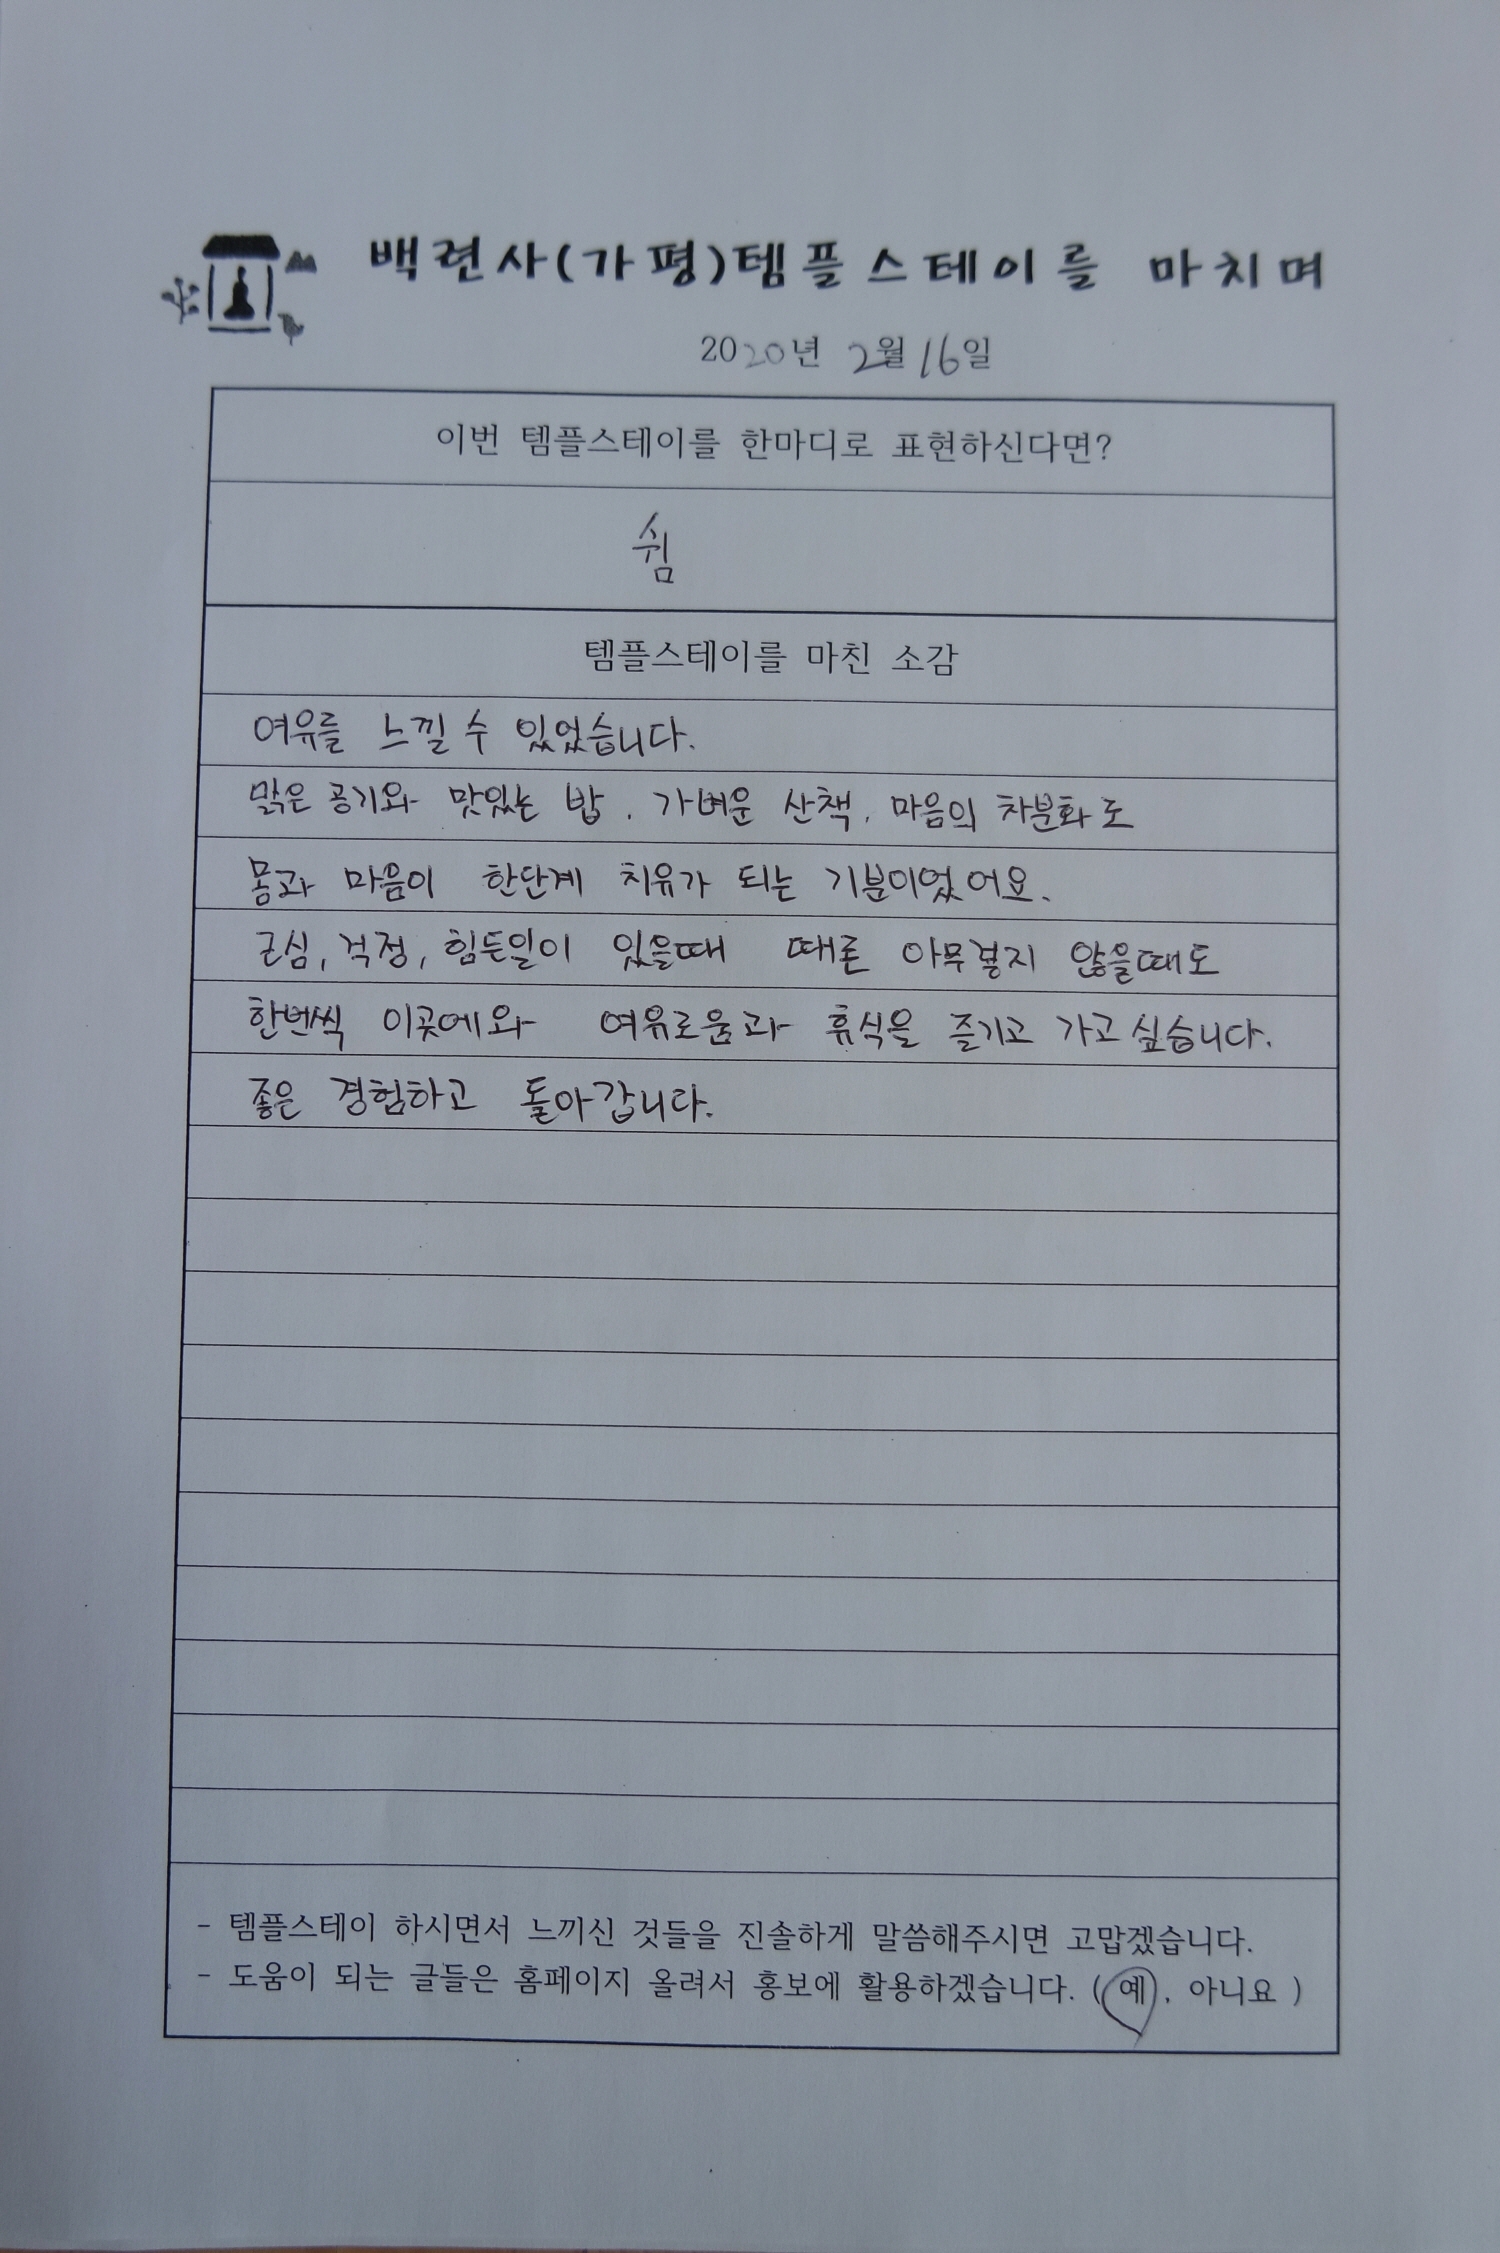 백련사(가평)템플스테이를 마치며
2020년 2월 16일
이번 템플스테이를 한마디로 표현하신다면?
쉼
템플스테이를 마친 소감
여유를 느낄 수 있었습니다.
맑은 공기와 맛있는 밥, 가벼운 산책, 마음의 차분화도
몸과 마음이 한단계 치유가 되는 기분이었어요.
근심, 걱정, 힘든일이 있을때 때론 아무렇지 않을때도
한번씩 이곳에와 여유로움과 휴식을 즐기고 가고싶습니다.
좋은 경험하고 돌아갑니다.
- 템플스테이 하시면서 느끼신 것들을 진솔하게 말씀해주시면 고맙겠습니다.
- 도움이 되는 글들은 홈페이지 올려서 홍보에 활용하겠습니다. ( 예, 아니요 )